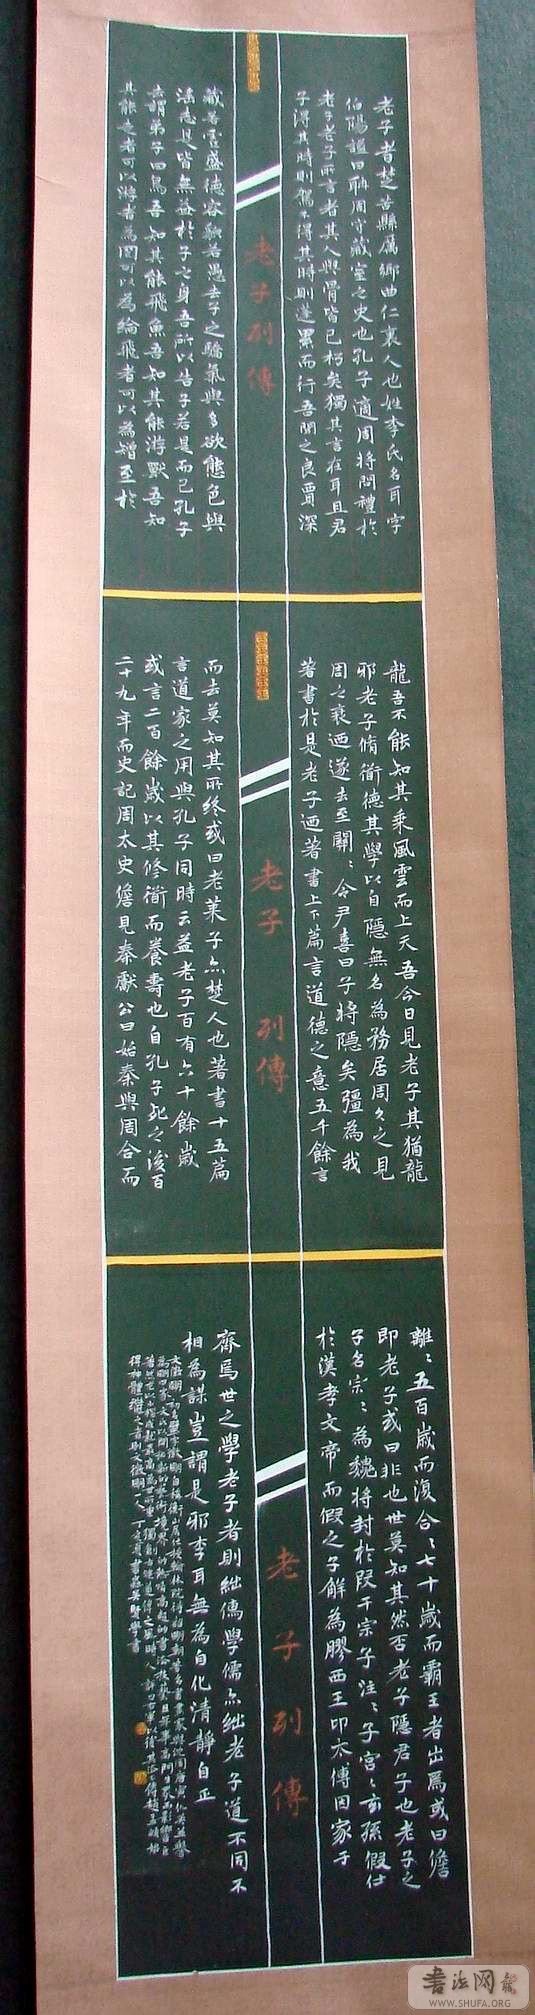 老子者楚苦縣厲鄉曲仁里人也姓李氏名耳字
伯陽謚曰聃周守藏室之史也孔子適周將問禮於
老子老子所言者其人與骨皆已朽矣獨其言在耳且君
子得其時則駕不得其時則蓬累而行吾聞之良賈深
老子列傳
藏若虛盛德容貌若愚去子之驕氣與多欲態色與
淫志是皆無益於子之身吾所以告子若是而已孔子
去謂弟子曰鳥吾知其能飛魚吾知其能游獸吾知
其能走者可以游者為罔可以為綸飛者可以為矰至於
龍吾不能知其乘風雲而上天吾今日見老子其猶龍
邪老子脩衜德其學以自隱無名為務居周久之見
周之衰迺遂去至關〻令尹喜曰子將隱矣彊為我
著書於是老子迺著書上下篇言道德之意五千餘言
老子列傳
而去莫知其所終或曰老萊子亦楚人也著書十五篇
言道家之用與孔子同時云益老子百有六十餘歲
或言二百餘歲以其修衜而養壽也自孔子死之後百
二十九年而史記周太史儋見秦獻公曰始秦與周合而
離〻五百歲而復合〻七十歲而霸王者出焉或曰儋
即老子或曰非也世莫知其然否老子隱君子也老子之
子名宗〻為魏將封於段干宗子注〻子宮〻玄孫假仕
於漢孝文帝而假之子解為膠西王卬太傅因家于
老子列傳
齊焉世之學老子者則絀儒學儒亦絀老子道不同不
相為謀豈謂是邪李耳無為自化清靜自正
書法网
WWW.SHUFA.ORG